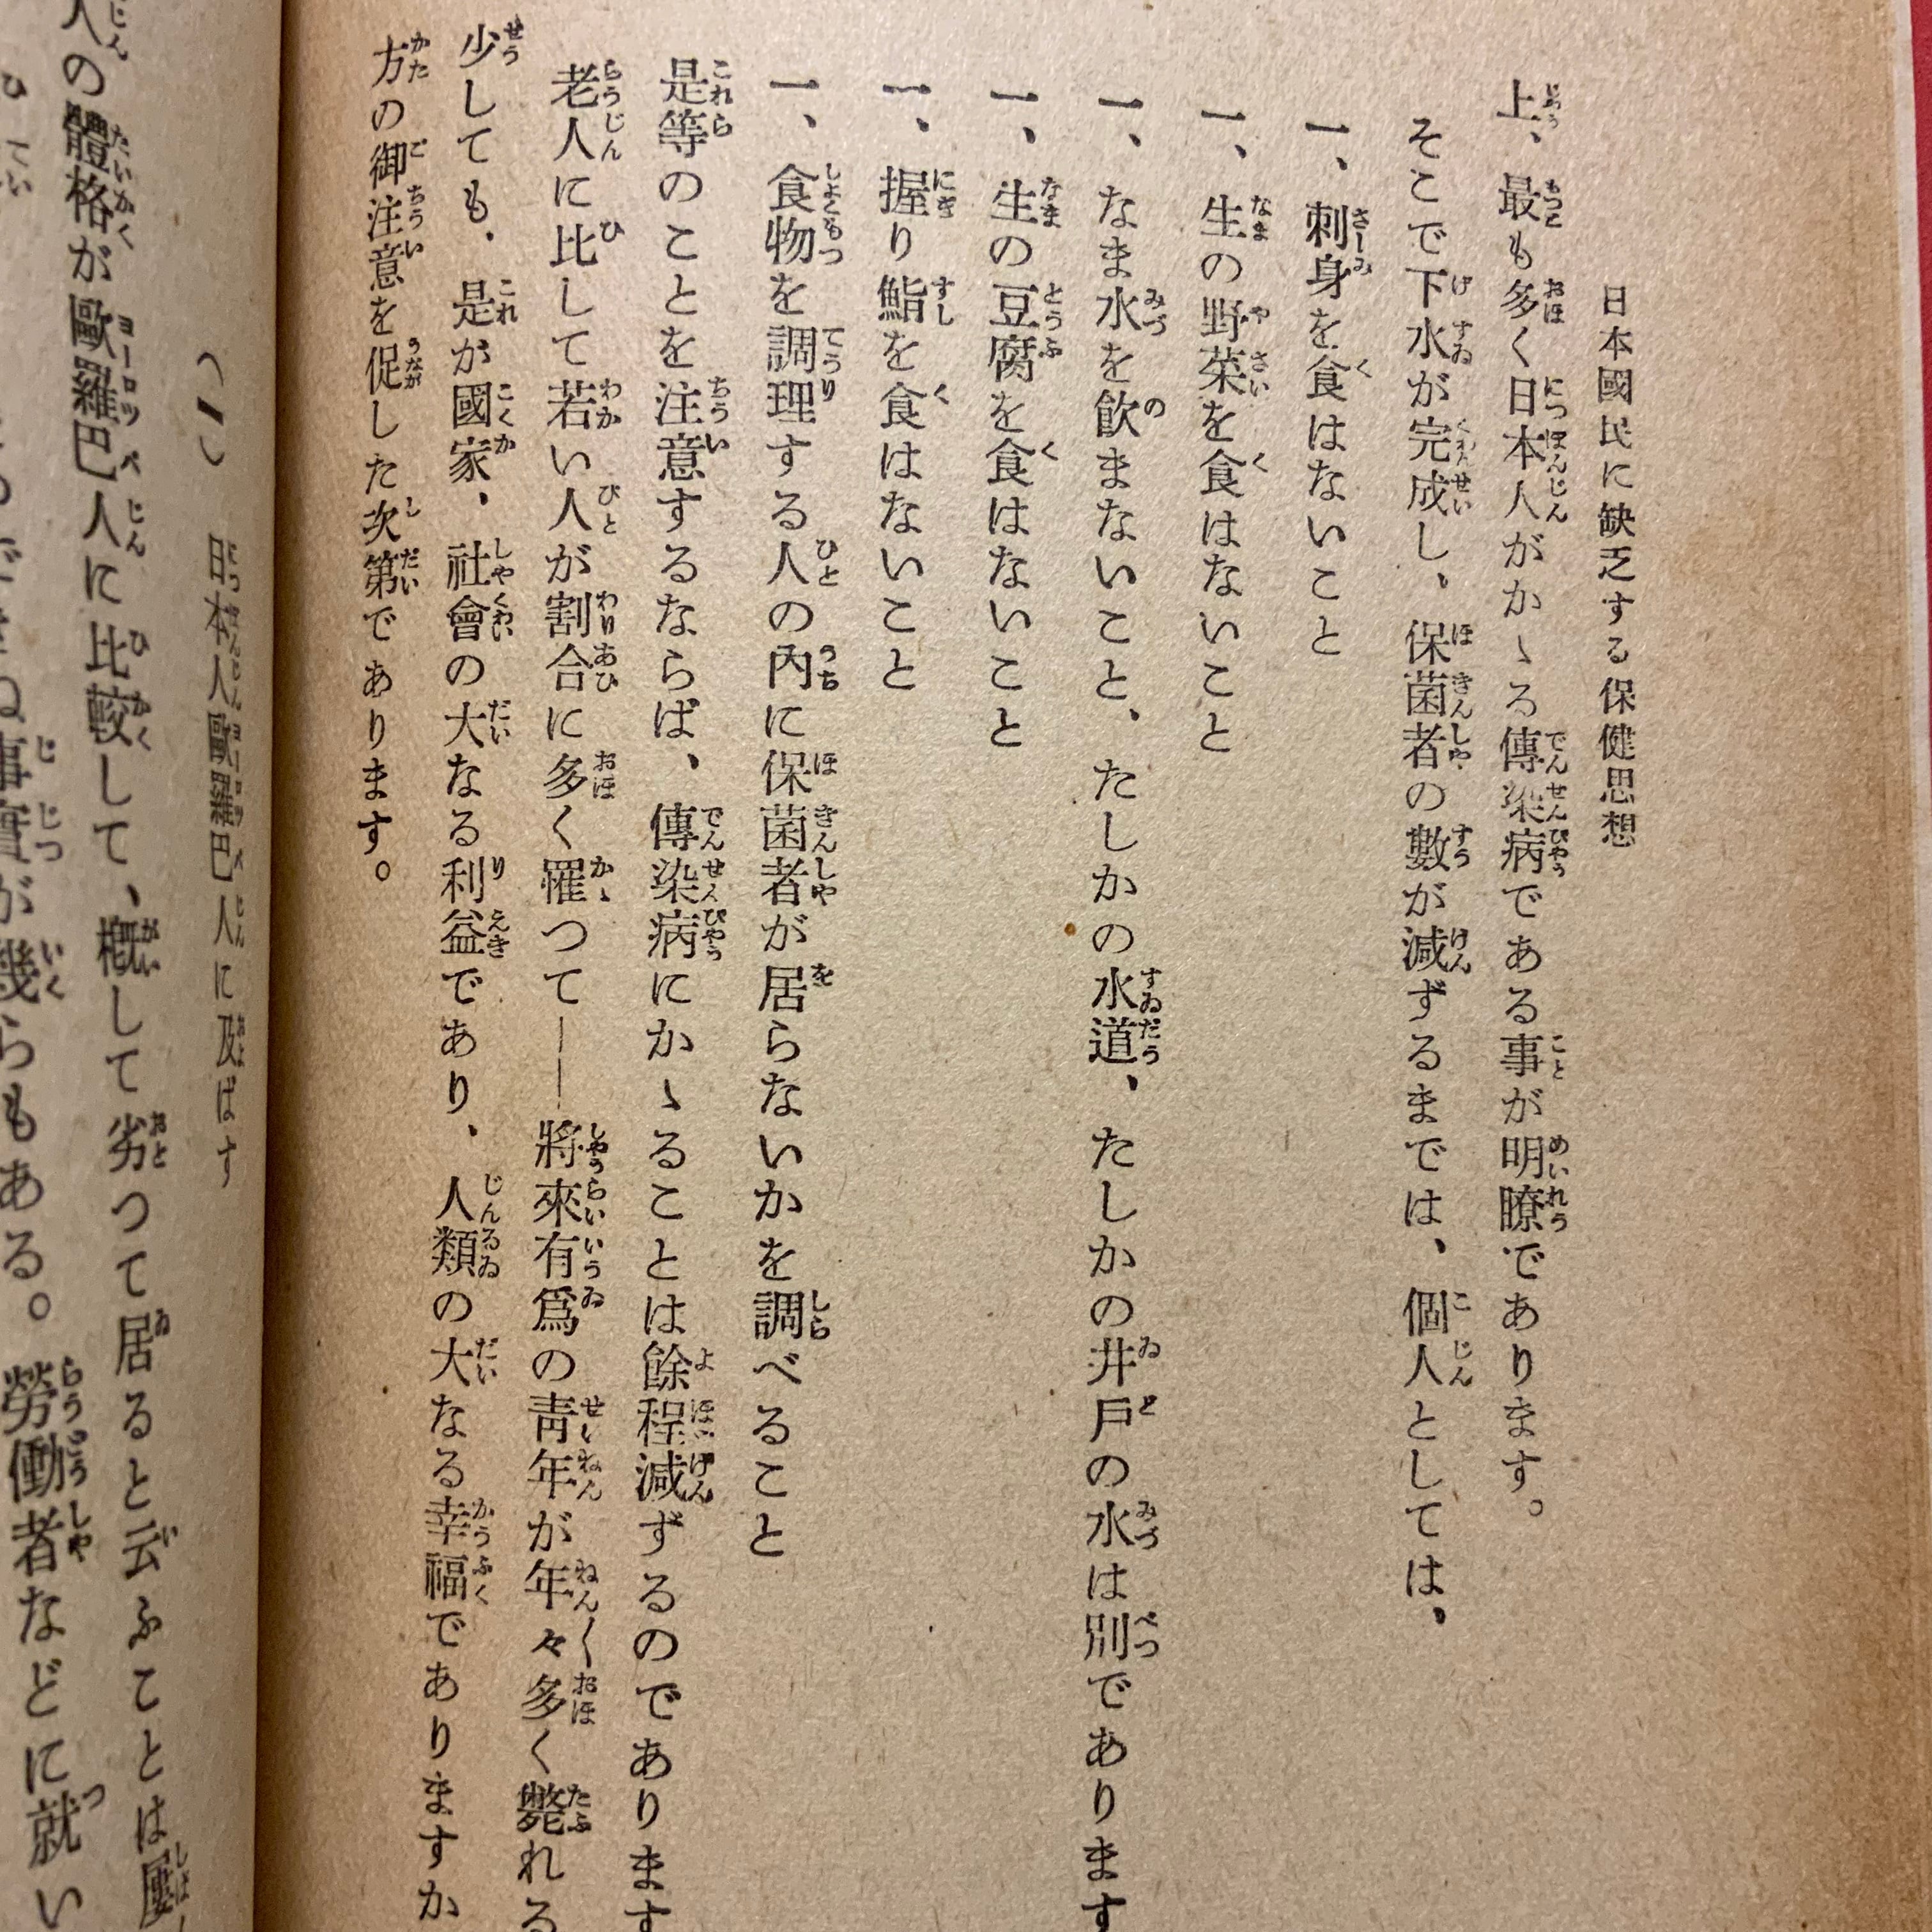 日本國民に缺乏する保健思想
上、最も多く日本人がかゝる傳染病である事が明瞭であります。
そこで下水が完成し、保菌者の數が減ずるまでは、個人としては、
一、刺身を食はないこと
一、生の野菜を食はないこと
一、なま水を飮まないこと、たしかの水道、たしかの井戸の水は別であります
一、生の豆腐を食はないこと
一、握り鮨を食はないこと
一、食物を調理する人の內に保菌者が居らないかを調べること
是等のことを注意するならば、傳染病にかゝることは餘程減ずるのであります
老人に比して若い人が割合に多く罹つて――將來有爲の靑年が年々多く斃れる
少しても、是が國家、社會の大なる利益であり、人類の大なる幸福でありますか
方の御注意を促した次第であります。
(一) 日本人歐羅巴人に及ばす
人の體格が歐羅巴人に比較して、槪して劣つて居ると云ふことは屢
事實が幾らもある。勞働者などに就い